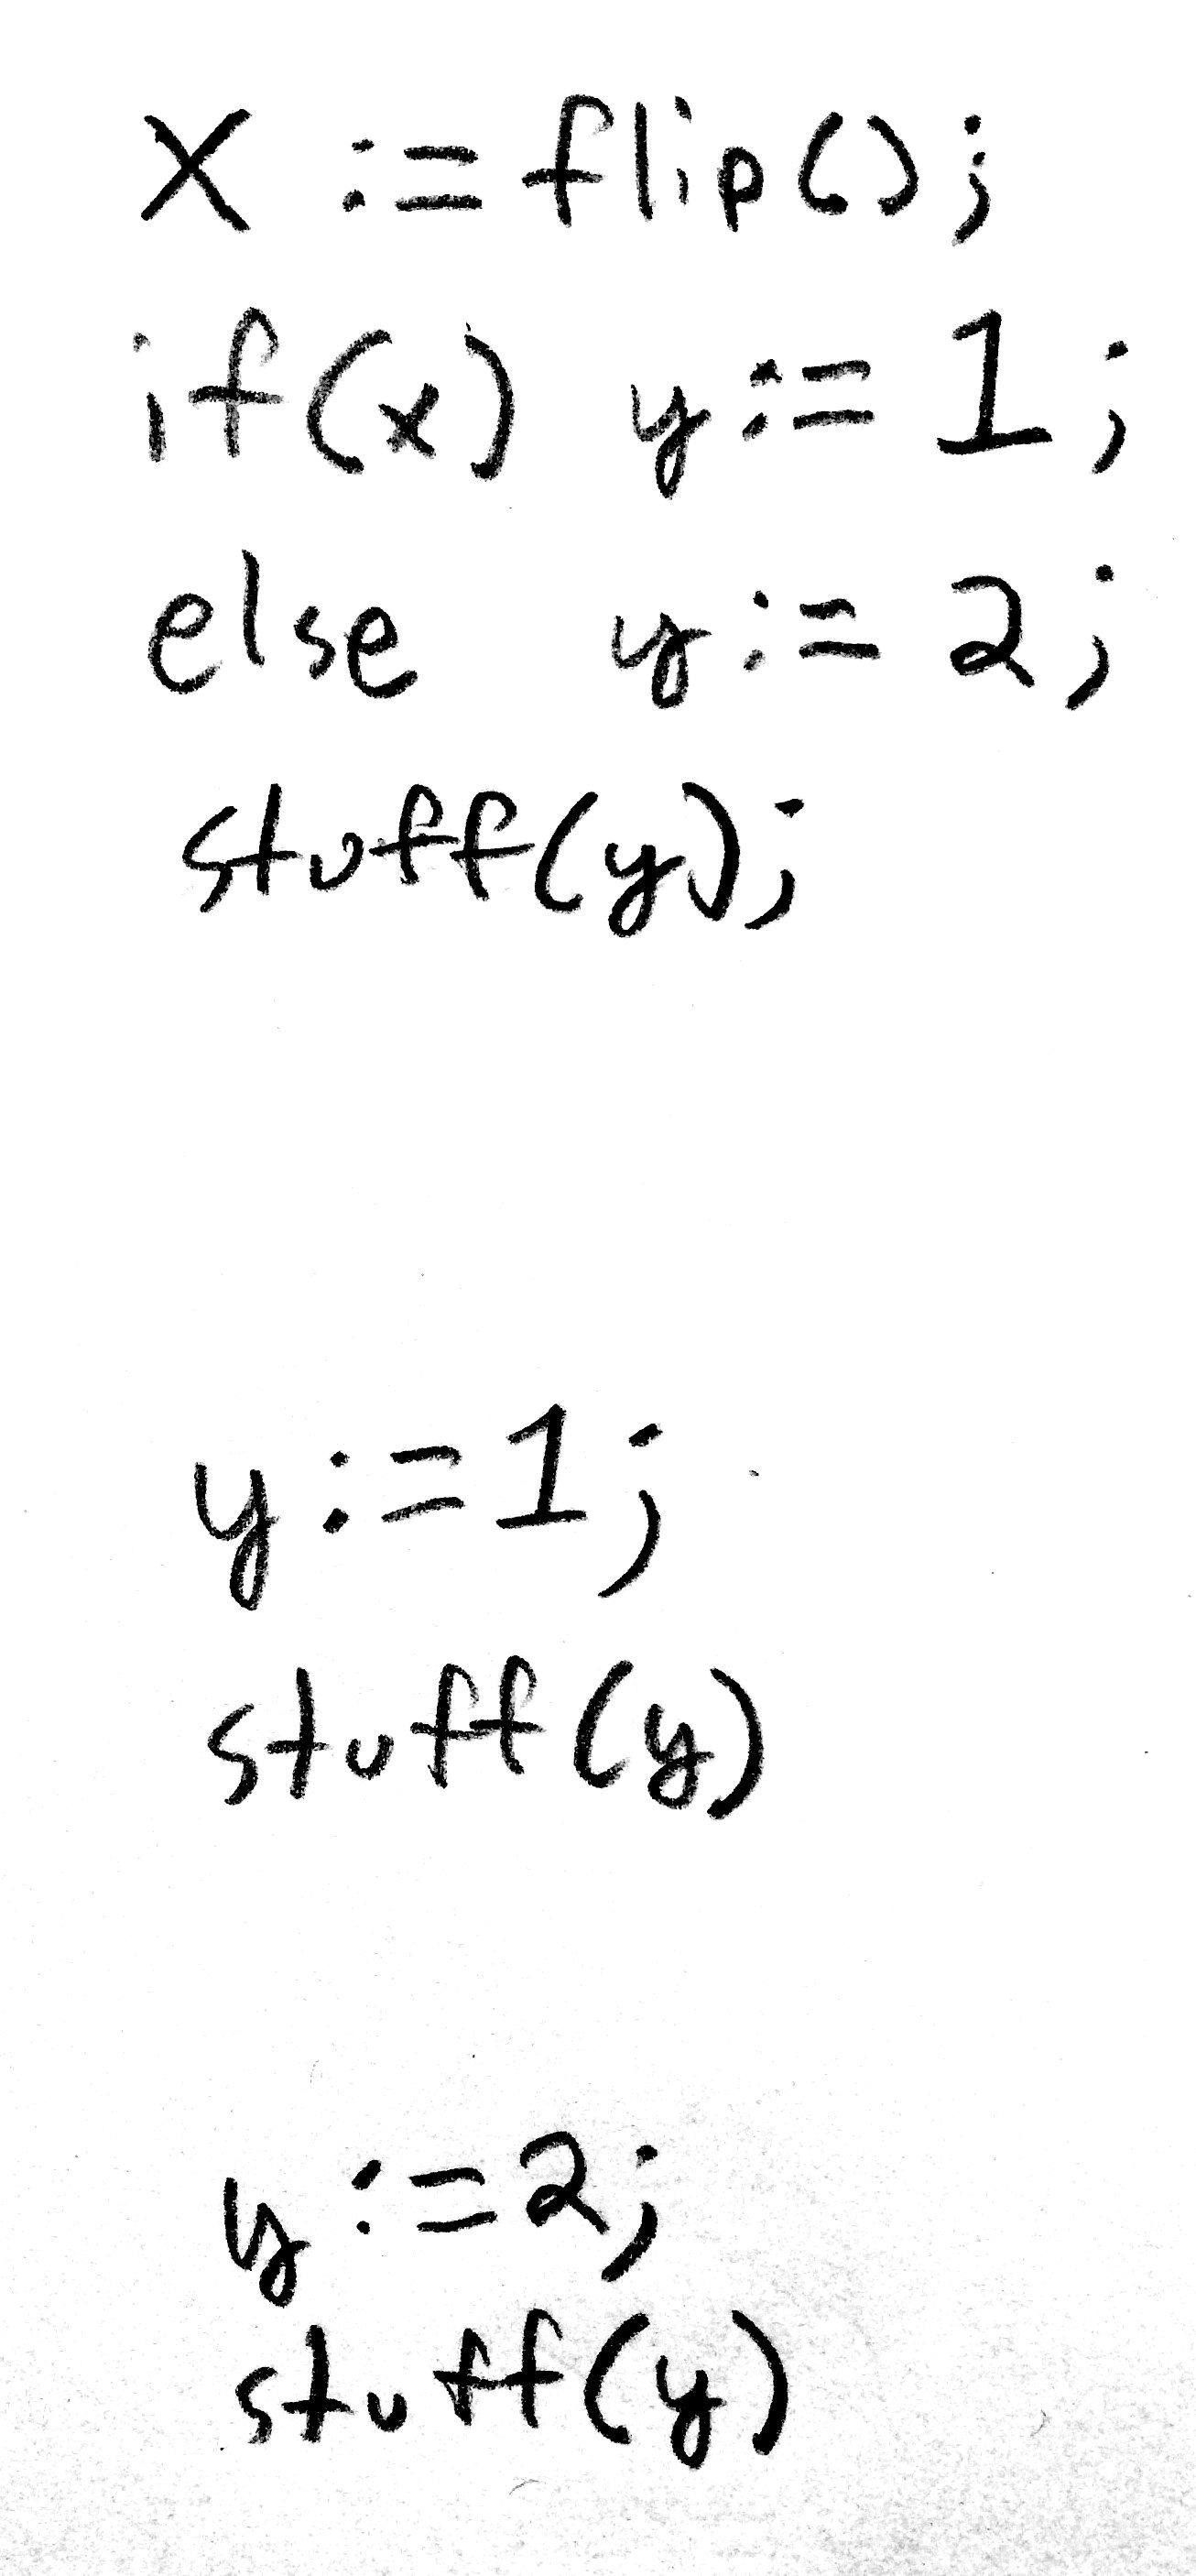 x := flip();
if(x) y := 1;
else y := 2;
stuff(y);
y := 1;
stuff(y)
y := 2;
stuff(y)